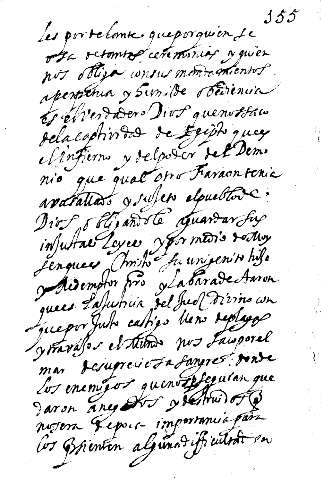 355
les por delante que por quien se
osa de tantas ceremonias y quien
nos obliga con sus mandamientos
a perpetua y humilde obediencia
es el verdadero Dios que nos saco
de la captividad de Egipto que es
el infierno y del poder del Demo
nio que qual otro Faraon tenia
avasallado y sujeto el pueblo de
Dios obligandole aguardar sus
injustas leyes y por medio de Moy
sen que es Christo su unigenito hijo
y Redemptor nro y la bara de Aaron
que es la Justicia del Juez Divino con
que por justo castigo lleno de plagas
y trabajos el mundo nos saco por el
mar de su preciosa sangre donde
los enemigos que nos perseguian que
daron anegados y destruidos
no sera de poca importancia para
los que sienten alguna dificultad en